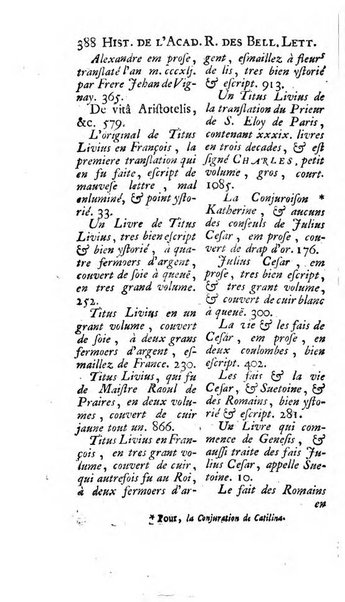 388 HIST. DE L'ACAD. R. DES BELL. LETT.
Alexandre em prose,
translaté l'an m. cccxlj.
par Frere Jehan de Vig-
nay. 365.
De vitâ Aristotelis,
&c. 579.
L'original de Titus
Livius en François, la
premiere translation qui
en fu faite, escript de
mauvese lettre, mal
enluminé, & point ysto-
rié. 33.
Un Livre de Titus
Livius, tres bien escript
& bien ystorié, à qua-
tre fermoers d'argent,
couvert de soie à queuë,
en tres grand volume.
252.
Titus Livius en un
grant volume, couvert
de soie, à deux grans
fermoers d'argent, es-
maillez de France. 230.
Titus Livius, qui fu
de Maistre Raoul de
Praires, en deux volu-
mes, couvert de cuir
jaune tout un. 866.
Titus Livius en Fran-
çois, en tres grant vo-
lume, couvert de cuir,
qui autresfois fu au Roi,
à deux fermoers d'ar-
gent, esmaillez à fleurs
de lis, tres bien ystorié
& escript. 913.
Un Titus Livius de
la translation du Prieur
de S. Eloy de Paris,
contenant xxxix. livres
en trois decades, & est
signé CHARLES, petit
volume, gros, court.
1085.
La Conjuroison *
Katherine, & aucuns
des conseuls de Julius
Cesar, em prose, cou-
vert de drap d'or. 176.
Julius Cesar, em
prose, tres bien escript,
& tres grant volume,
& couvert de cuir blanc
à queuë. 300.
La vie & les fais de
Cesar, em prose, en
deux coulombes, bien
escript. 402.
Les fais & la vie
Cesar, & Suetoine, &
des Romains, bien ysto-
rié & escript. 281.
Un Livre qui com-
mence de Genesis, &
aussi traite des fais Ju-
lius Cesar, appelle Sue-
toine. 10.
Le fait des Romains
en
* Pour, la Conjuration de Catilina.